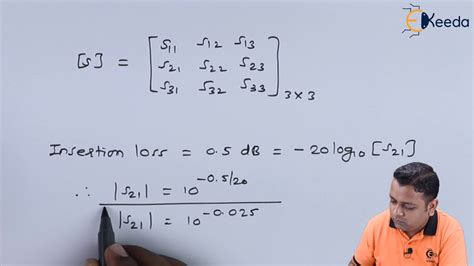 EKeeda
[s] = [ s11 s12 s13
s21 s22 s23
s31 s32 s33 ] 3×3
Insertion loss = 0.5 dB = -20 log10 [s21]
∴ |s21| = 10^-0.5/20
|s21| = 10^-0.025